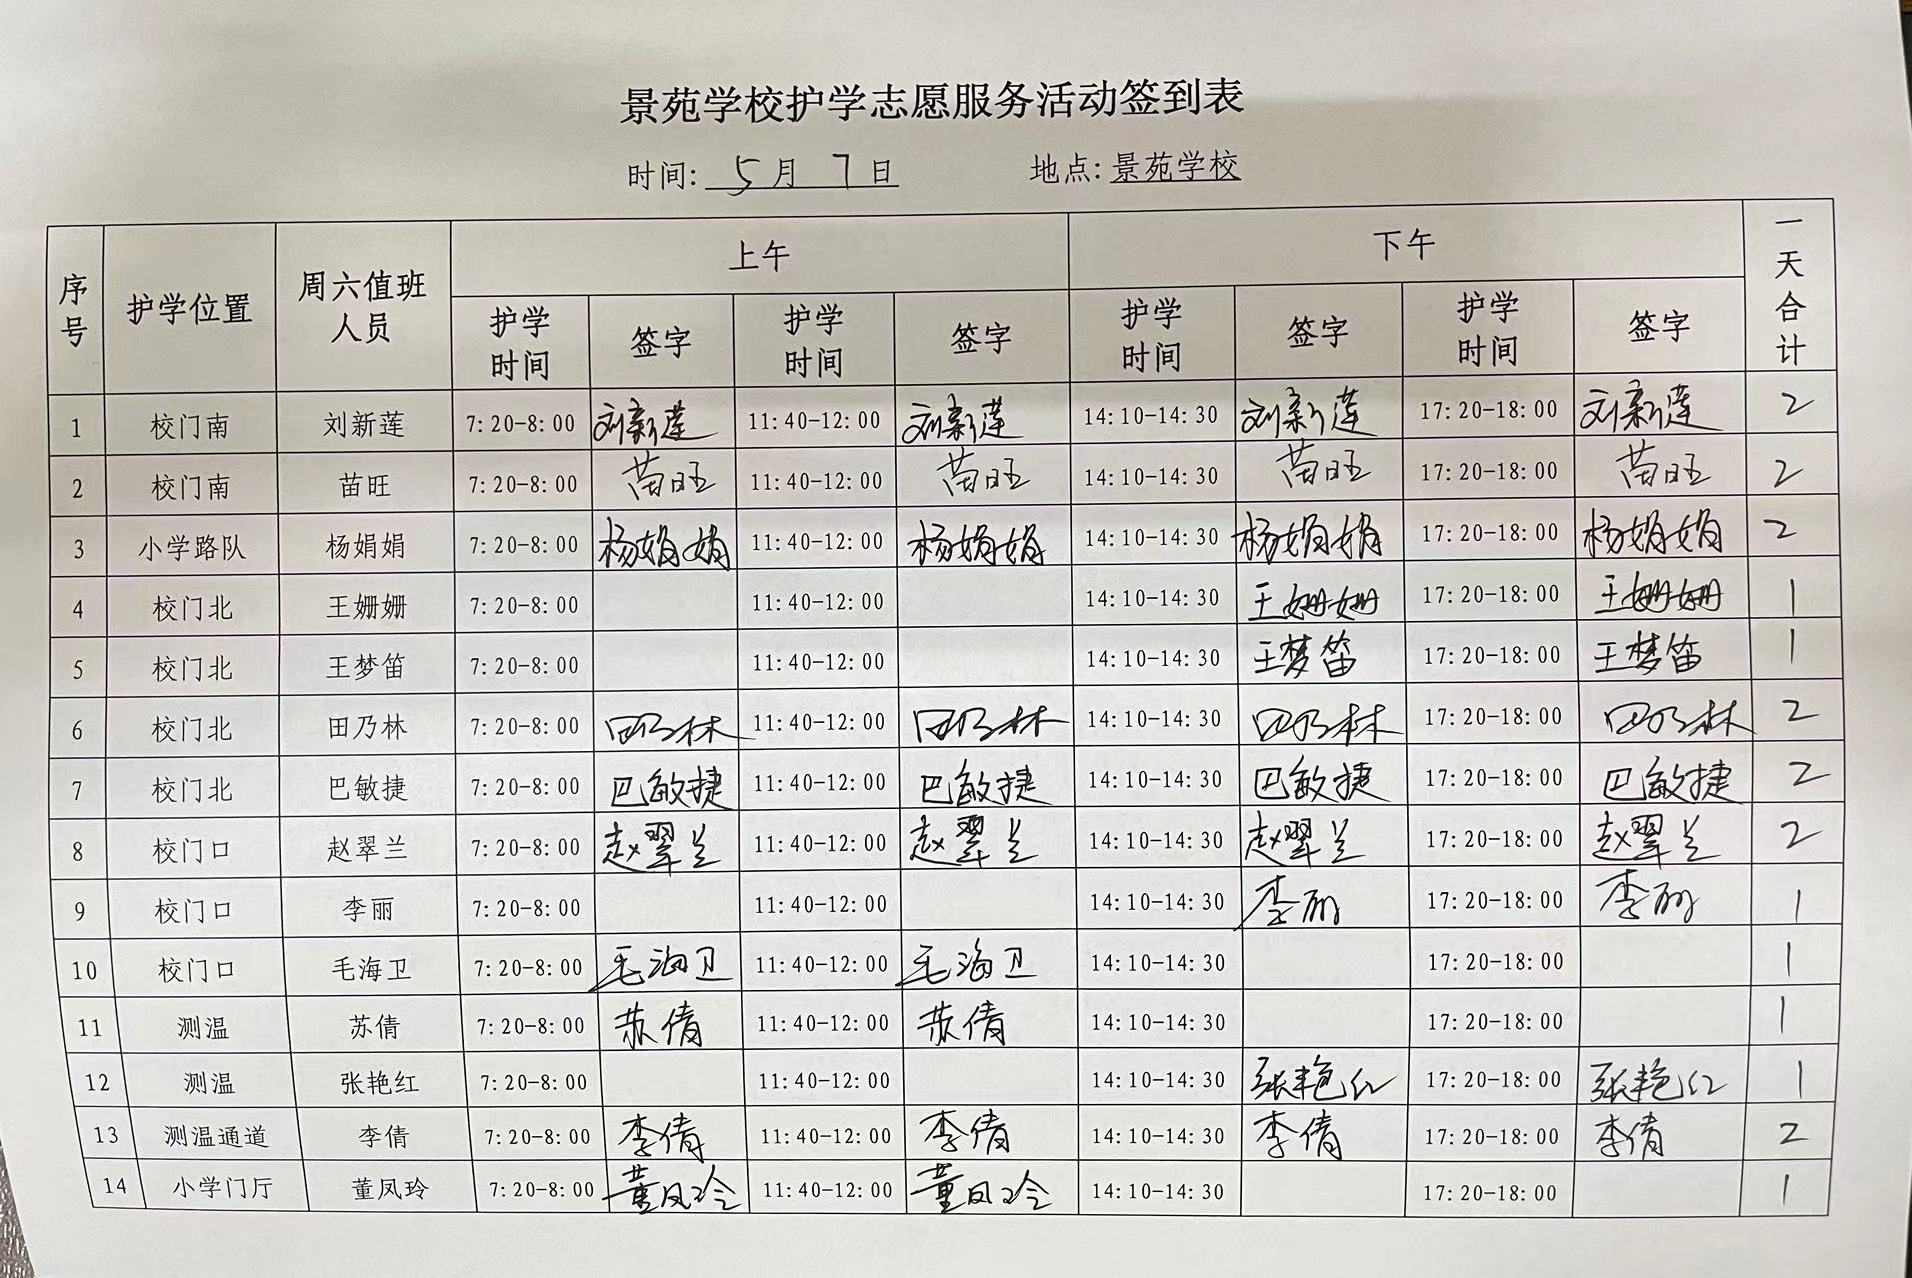 景苑学校护学志愿服务活动签到表
时间: 5月7日 地点: 景苑学校
序号 护学位置 周六值班人员 上午 下午 一天合计
护学时间 签字 护学时间 签字 护学时间 签字 护学时间 签字
1 校门南 刘新莲 7:20-8:00 刘新莲 11:40-12:00 刘新莲 14:10-14:30 刘新莲 17:20-18:00 刘新莲 2
2 校门南 苗旺 7:20-8:00 苗旺 11:40-12:00 苗旺 14:10-14:30 苗旺 17:20-18:00 苗旺 2
3 小学路队 杨娟娟 7:20-8:00 杨娟娟 11:40-12:00 杨娟娟 14:10-14:30 杨娟娟 17:20-18:00 杨娟娟 2
4 校门北 王姗姗 7:20-8:00 11:40-12:00 14:10-14:30 王姗姗 17:20-18:00 王姗姗 1
5 校门北 王梦笛 7:20-8:00 11:40-12:00 14:10-14:30 王梦笛 17:20-18:00 王梦笛 1
6 校门北 田乃林 7:20-8:00 田乃林 11:40-12:00 田乃林 14:10-14:30 田乃林 17:20-18:00 田乃林 2
7 校门北 巴敏捷 7:20-8:00 巴敏捷 11:40-12:00 巴敏捷 14:10-14:30 巴敏捷 17:20-18:00 巴敏捷 2
8 校门口 赵翠兰 7:20-8:00 赵翠兰 11:40-12:00 赵翠兰 14:10-14:30 赵翠兰 17:20-18:00 赵翠兰 2
9 校门口 李丽 7:20-8:00 11:40-12:00 14:10-14:30 李丽 17:20-18:00 李丽 1
10 校门口 毛海卫 7:20-8:00 毛海卫 11:40-12:00 毛海卫 14:10-14:30 17:20-18:00 1
11 测温 苏倩 7:20-8:00 苏倩 11:40-12:00 苏倩 14:10-14:30 17:20-18:00 1
12 测温 张艳红 7:20-8:00 11:40-12:00 14:10-14:30 张艳红 17:20-18:00 张艳红 1
13 测温通道 李倩 7:20-8:00 李倩 11:40-12:00 李倩 14:10-14:30 李倩 17:20-18:00 李倩 2
14 小学门厅 董凤玲 7:20-8:00 董凤玲 11:40-12:00 董凤玲 14:10-14:30 17:20-18:00 1